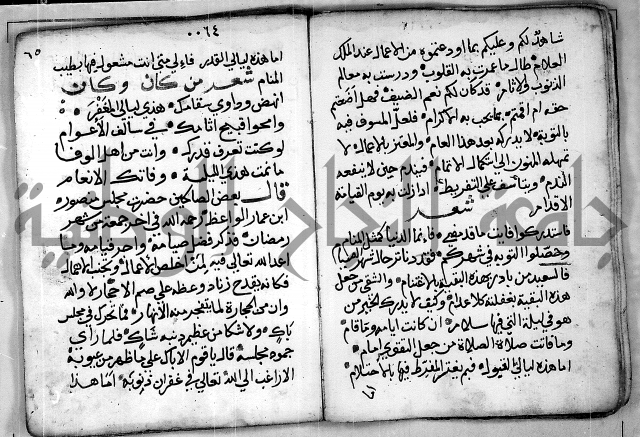 شاهد لكم وعليكم بما اودعتموه من الاعمال عند الملك
العلام طالما عمرت به القلوب ودرست به معالم
الذنوب والاثام فقد كان لكم نعم الضيف فهل اضعتم
حقه ام اقمتم بما يجب له من اكرام فلعل المسوف فيه
بالتوبة لا يدركه بعد هذا العام والمغتر بالاعمال لا
تمهله المنون الى استكمال الاعمال فيندم حين لا ينفعه
الندم ويتأسف على التفريط اذا زلت يوم القيامة
الاقدام شعر
فاستدركوا فايت ما قد مضى فانما الدنيا كمثل المنام
وحصلوا التوبة في شهركم فقد دنا ترحال شهر الصيام
فالسعيد من بادر بهذه البقية بالاغتنام والشقي من جعل
هذه البقية بغفلته كالاعدام وكيف لا يدرك الخير من
هو في ليلة التي فيها سلام ان كانت ايامه وتاقام
وما فاتت صلاة الصلاة من جعل التقوى امام
اما هذه ليالي القبول فبم يغتر المفرط فيها بالاحلام
اما
٠٠٦٤
٦٥
اما هذه ليالي القدر فالى متى انت مشغول فيها بطيب
المنام شعر من كان وكان
انهض وداوي سقامك هذي ليالي المغفرة
وامحوا قبيح اثامك في سالف الاعوام
لو كنت تعرف قدرك وانت من اهل الوفا
ما نمت هذي الليلة وفاتك الانعام
قال بعض الصالحين حضرت مجلس منصور
ابن عمار الواعظ رحمه الله في اخر جمعة من شهر
رمضان فذكر فضل صيامه واجر قيامه وما
اعد الله تعالى فيه لمن اخلص الاعمال وتجنب الاعمال
فكأنه يقدح زناد وعظه على صم الاحجار لا والله
وان من الحجارة لما يتفجر منه الانهار فما تحرك في مجلسه
باك ولا شكا من عظيم ذنبه شاك فلما راي
جمود مجلسه قال يا قوم الا باك على ما ظهر من عيوبه
الا راغب الى الله تعالى في غفران ذنوبه اما هذا
جامعة النجاح الوطنية